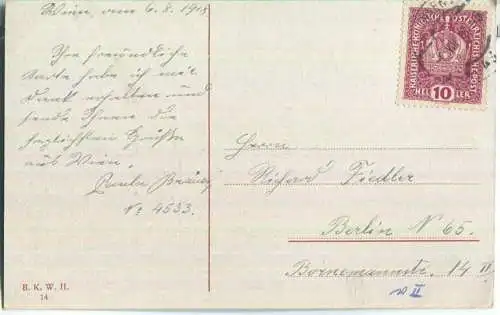 Wien, am 6.8.1918
Ihre freundliche
Karte habe ich mit
Dank erhalten und
sende Ihnen die
herzlichsten Grüße
aus Wien.
№ 4533.
B. K. W. II.
14
KAISERLICHE KÖNIGLICHE ÖSTERREICHISCHE POST
10
HELLER
Herrn
Richard Fiedler
Berlin N 65.
Bornemannstr. 14 II
v II